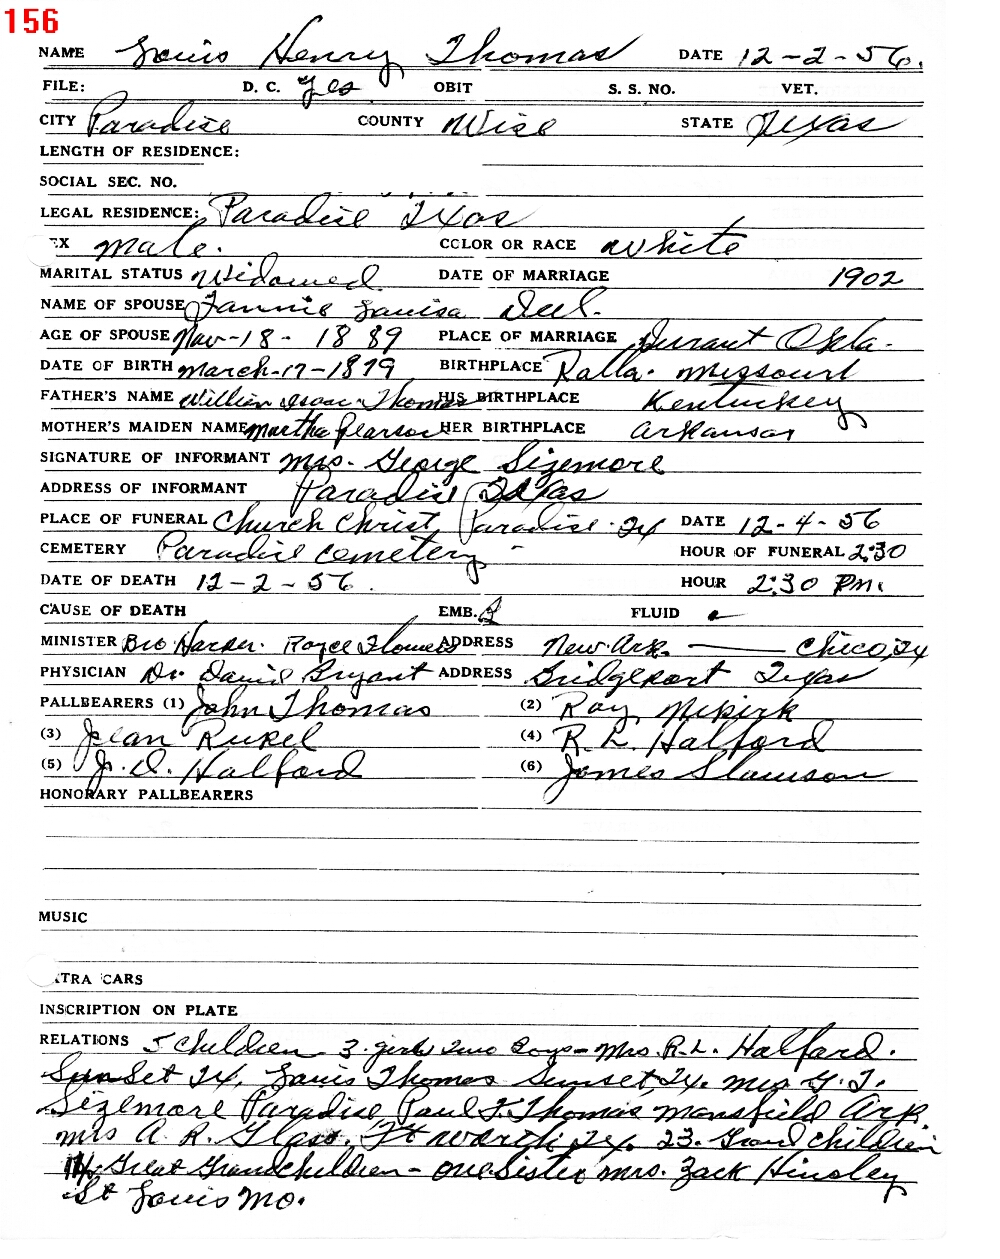 156
NAME Louis Henry Thomas DATE 12-2-56.
FILE: D. C. Yes OBIT S. S. NO. VET.
CITY Paradise COUNTY Wise STATE Texas
LENGTH OF RESIDENCE:
SOCIAL SEC. NO.
LEGAL RESIDENCE: Paradise Texas
EX Male. COLOR OR RACE White
MARITAL STATUS Widowed DATE OF MARRIAGE 1902
NAME OF SPOUSE Fannie Louisa Deel.
AGE OF SPOUSE Nov-18-1889 PLACE OF MARRIAGE Durant Okla-
DATE OF BIRTH March-17-1879 BIRTHPLACE Rolla. Missouri
FATHER'S NAME William Isaac Thomas HIS BIRTHPLACE Kentuckey
MOTHER'S MAIDEN NAME Martha Pearson HER BIRTHPLACE Arkansas
SIGNATURE OF INFORMANT Mrs. George Sizemore
ADDRESS OF INFORMANT Paradise Texas
PLACE OF FUNERAL Church Christ Paradise Tx DATE 12-4-56
CEMETERY Paradise Cemetery - HOUR OF FUNERAL 2:30
DATE OF DEATH 12-2-56. HOUR 2:30 PM.
CAUSE OF DEATH EMB. FLUID
MINISTER Bro Harder. Royce Flowers ADDRESS New Ark. — Chico, Tx
PHYSICIAN Dr. David Bryant ADDRESS Bridgeport Texas
PALLBEARERS (1) John Thomas (2) Roy Nikirk
(3) Jean Rukel (4) R. L. Halford
(5) J. D. Halford (6) James Slawson
HONORARY PALLBEARERS
MUSIC
XTRA CARS
INSCRIPTION ON PLATE
RELATIONS 5 Children - 3. girls Two Boys - Mrs. R. L. Halford.
SunSet Tx, Louis Thomas Sunset, Tx. Mrs G. T.
Sizemore Paradise Paul T. Thomas Mansfield Ark
Mrs A. R. Glass. Ft Worth Tx. 23. Grand Children
14 Great Grandchildren - One Sister Mrs. Zack Hinsley
St Louis Mo.